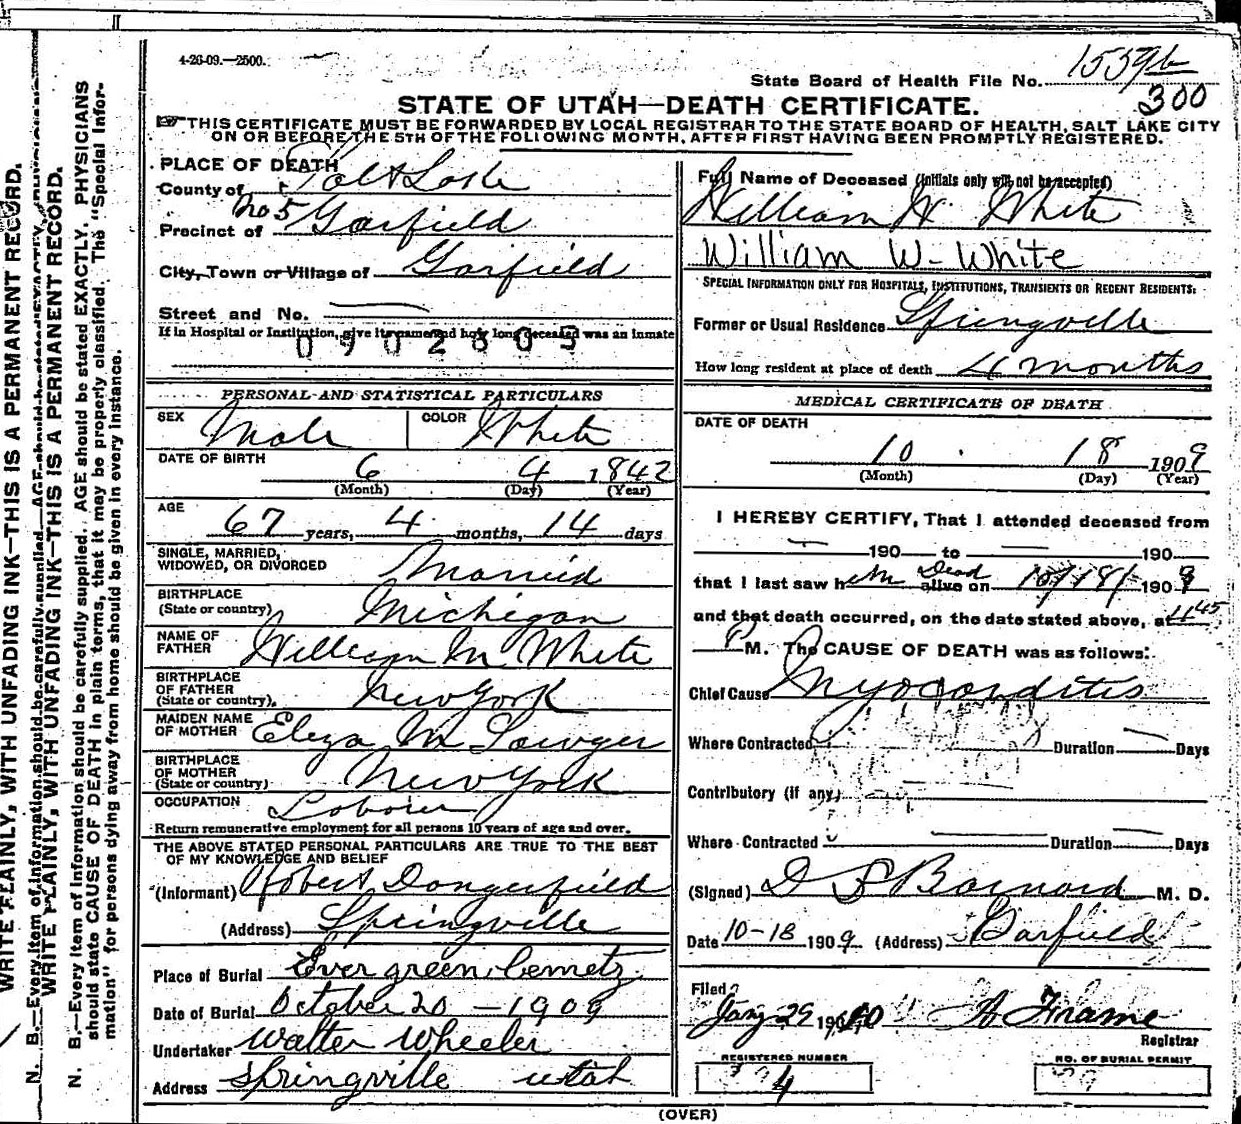 4-26-09.—2500.
State Board of Health File No. 1559b
300
STATE OF UTAH—DEATH CERTIFICATE.
THIS CERTIFICATE MUST BE FORWARDED BY LOCAL REGISTRAR TO THE STATE BOARD OF HEALTH, SALT LAKE CITY
ON OR BEFORE THE 5TH OF THE FOLLOWING MONTH, AFTER FIRST HAVING BEEN PROMPTLY REGISTERED.
PLACE OF DEATH
County of Salt Lake
Precinct of No 5 Garfield
City, Town or Village of Garfield
Street and No.
If in Hospital or Institution, give its name and how long deceased was an inmate
0902805
PERSONAL AND STATISTICAL PARTICULARS
SEX Male COLOR White
DATE OF BIRTH 6 4 1842
(Month) (Day) (Year)
AGE 67 years, 4 months, 14 days
SINGLE, MARRIED,
WIDOWED, OR DIVORCED Married
BIRTHPLACE
(State or country) Michigan
NAME OF
FATHER William M White
BIRTHPLACE
OF FATHER
(State or country). New York
MAIDEN NAME
OF MOTHER Eliza M Sawyer
BIRTHPLACE
OF MOTHER
(State or country) New York
OCCUPATION Laborer
Return remunerative employment for all persons 10 years of age and over.
THE ABOVE STATED PERSONAL PARTICULARS ARE TRUE TO THE BEST
OF MY KNOWLEDGE AND BELIEF
(Informant) Robert Dangerfield
(Address) Springville
Place of Burial Ever green Cemetry
Date of Burial October 20 - 1909
Undertaker Walter Wheeler
Address Springville utah
Full Name of Deceased (Initials only will not be accepted)
William W White
William W- White
SPECIAL INFORMATION ONLY FOR HOSPITALS, INSTITUTIONS, TRANSIENTS OR RECENT RESIDENTS:
Former or Usual Residence Springville
How long resident at place of death 4 months
MEDICAL CERTIFICATE OF DEATH
DATE OF DEATH
10 18 1909
(Month) (Day) (Year)
I HEREBY CERTIFY, That I attended deceased from
190 to 190
that I last saw him Dead alive on 10/18/ 1909
and that death occurred, on the date stated above, at 11 45
P M. The CAUSE OF DEATH was as follows:
Chief Cause Myocarditis
Where Contracted Duration Days
Contributory (if any)
Where Contracted Duration Days
(Signed) Barnard M. D.
Date 10-18 1909 (Address) Garfield
Filed
Jany 29 1910 A Frame
Registrar
REGISTERED NUMBER
4
NO. OF BURIAL PERMIT
(OVER)
WRITE PLAINLY, WITH UNFADING INK—THIS IS A PERMANENT RECORD.
N. B.—Every item of information should be carefully supplied. AGE should be stated EXACTLY. PHYSICIANS
WRITE PLAINLY, WITH UNFADING INK—THIS IS A PERMANENT RECORD.
N. B.—Every item of information should be carefully supplied. AGE should be stated EXACTLY. PHYSICIANS
should state CAUSE OF DEATH in plain terms, that it may be properly classified. The "Special Infor-
mation" for persons dying away from home should be given in every instance.